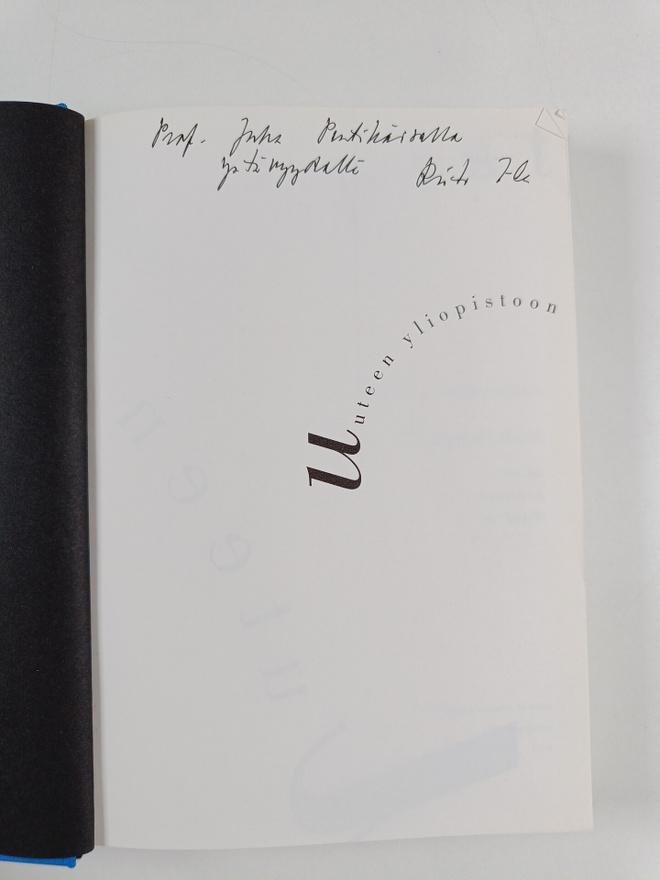 Prof. Juha Pentikäiselle
ystävyydellä Risto
Uuteen yliopistoon